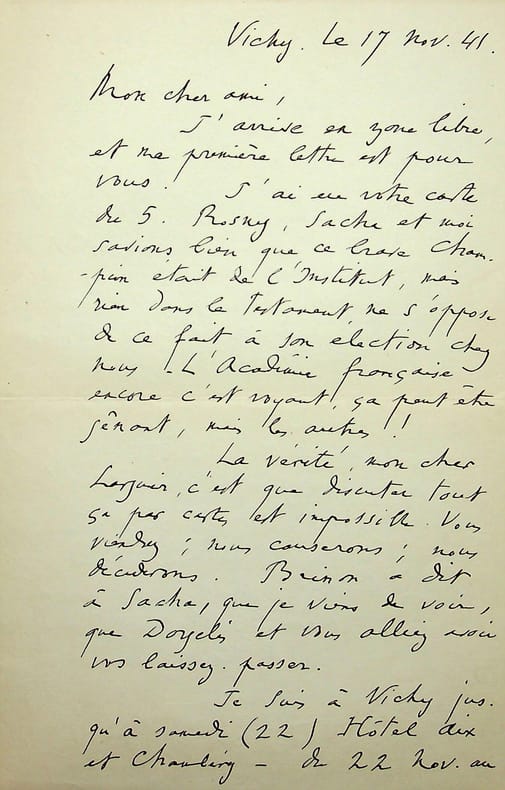 Vichy. Le 17 nov. 41.
Mon cher ami,
J'arrive en zone libre,
et ma première lettre est pour
vous. J'ai eu votre carte
du 5. Rosny, Sacha et moi
savions bien que ce brave Cham-
-pion était de l'Institut, mais
rien dans le testament ne s'oppose
de ce fait à son élection chez
nous - L'Académie française
encore c'est voyant, ça peut être
gênant, mais les autres !!
La vérité, mon cher
Larguier, c'est que discuter tout
ça par cartes est impossible. Vous
viendrez ; nous causerons ; nous
déciderons. Brinon a dit
à Sacha, que je viens de voir,
que Dorgelès et vous alliez avoir
vos laissez-passer.
Je suis à Vichy jus-
qu'à samedi (22) Hôtel Aix
et Chambéry - du 22 nov. au